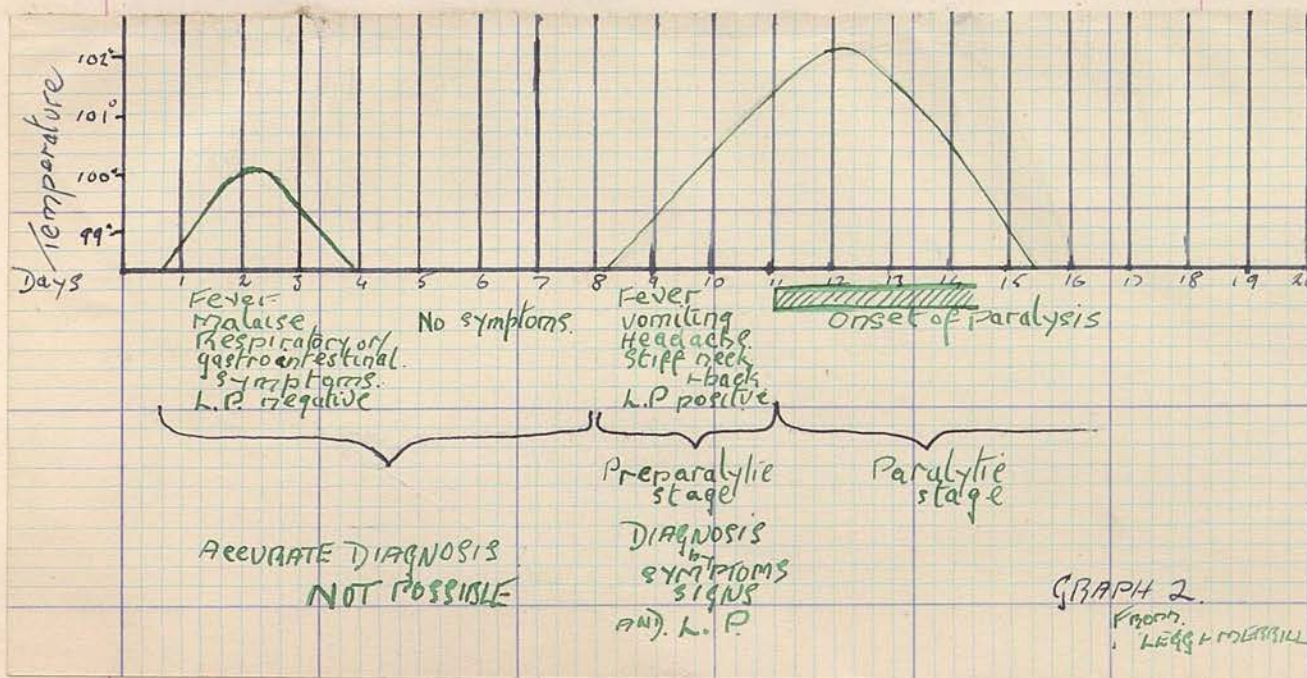 Temperature
102°
101°
100°
99°
Days 1 2 3 4 5 6 7 8 9 10 11 12 13 14 15 16 17 18 19 20
Fever
malaise
Respiratory or
gastroantestinal
symptoms.
L.P. negative
No symptoms.
Fever
vomiting
Headache
Stiff neck
+ back
L.P positive
Onset of Paralysis
Preparalytic
stage
Paralytic
stage
ACCURATE DIAGNOSIS
NOT POSSIBLE
DIAGNOSIS
by
SYMPTOMS
SIGNS
AND. L. P.
GRAPH 2.
FROM.
LEGG + MERRILL